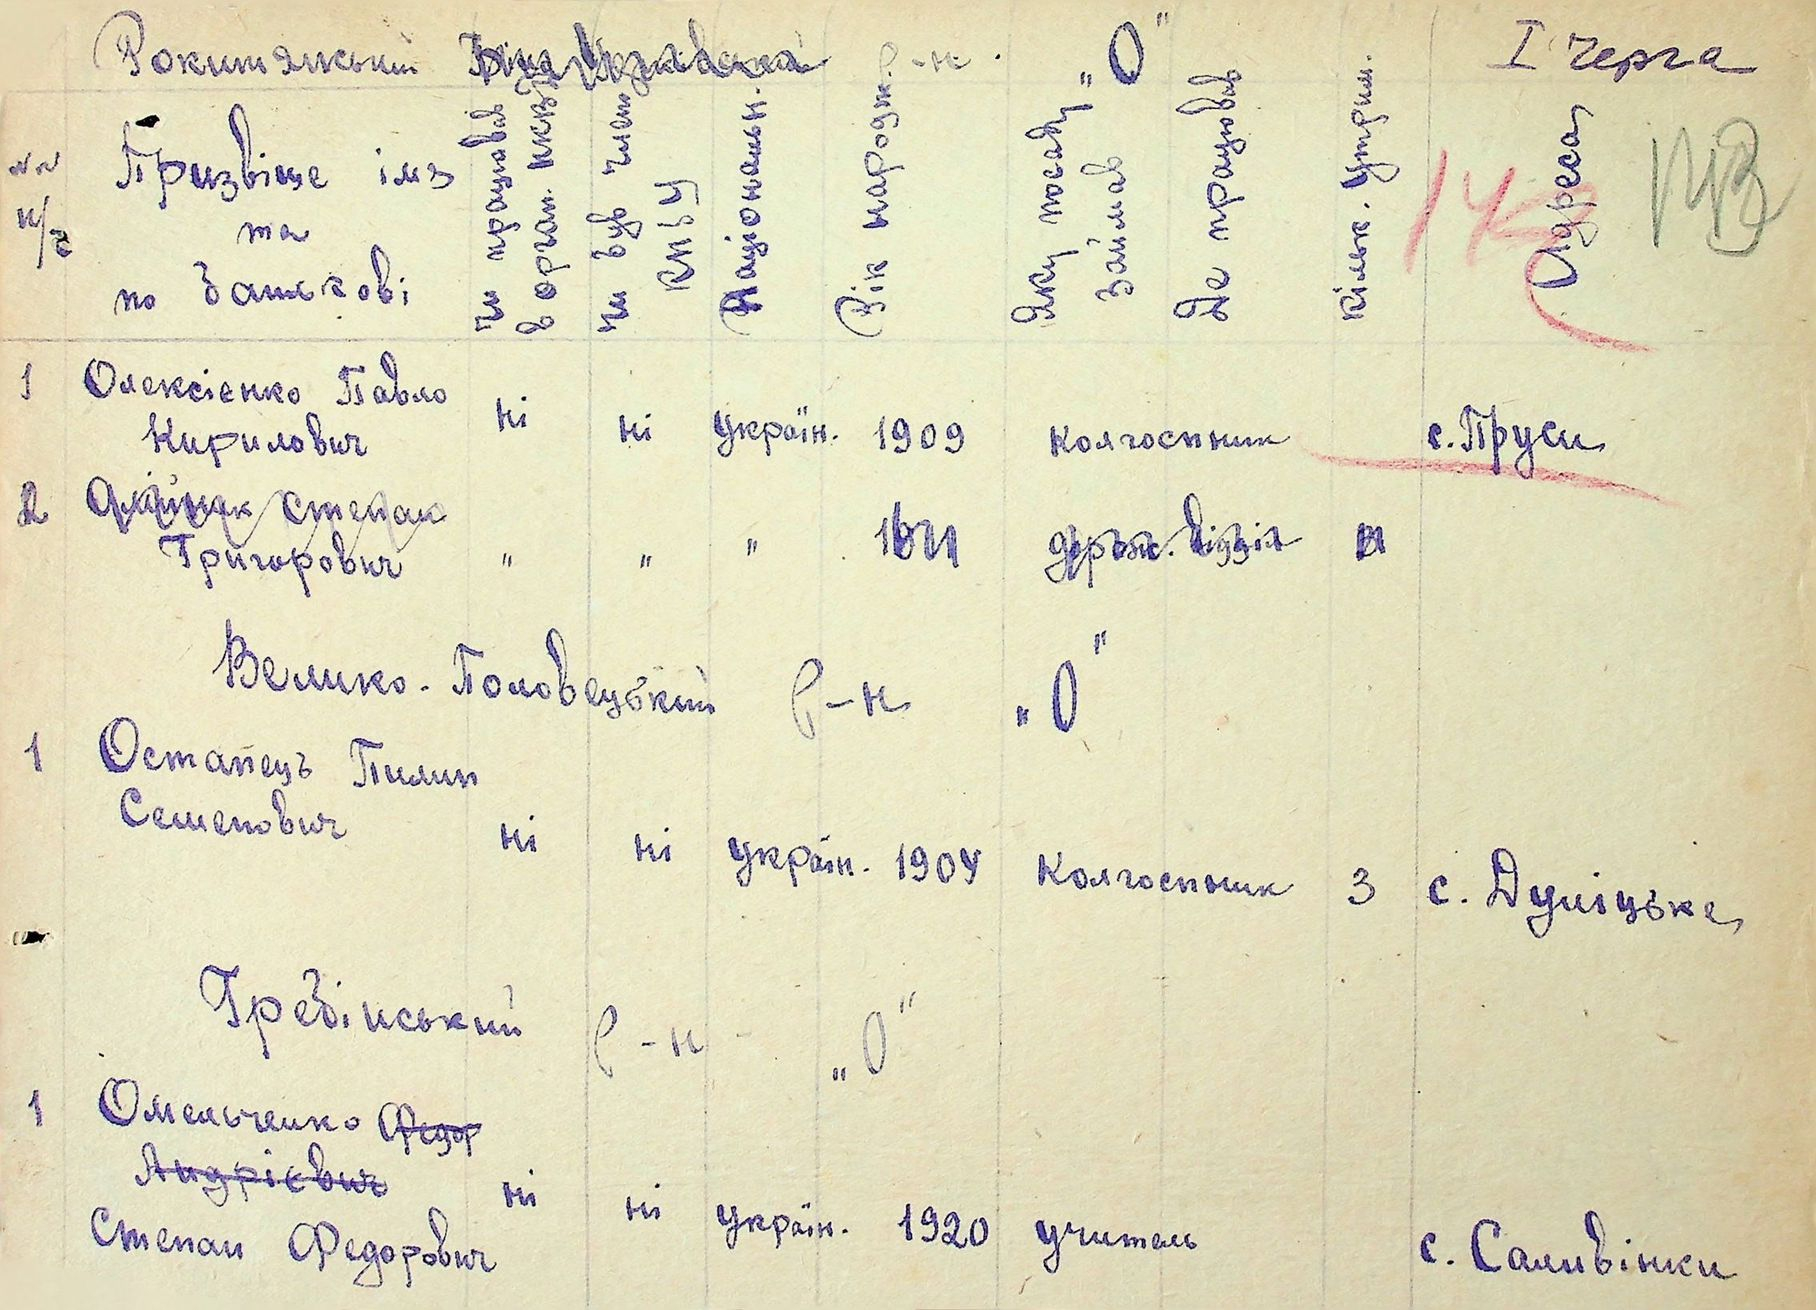 Рокитянський р-н. „О" І Черга
№№ п/г
Призвіще імя
та
по батькові
чи працював в орган. НКВД
чи був член КПбУ
Національн.
Вік народж.
Яку посаду займав
Де працював
кільк. утрим.
Адреса
1 Олексієнко Павло
Кирилович ні ні україн. 1909 колгоспник с. Пруси
2 Олійник Степан
Григорович " " "
Велико-Половецький р-н „О"
1 Остапець Пилип
Семенович ні ні україн. 1904 Колгоспник 3 с. Дуліцьке
Гребінський р-н „О"
1 Омельченко Федор
Андрієвич ні ні україн. 1920 учитель
Степан Федорович с. Саливінки